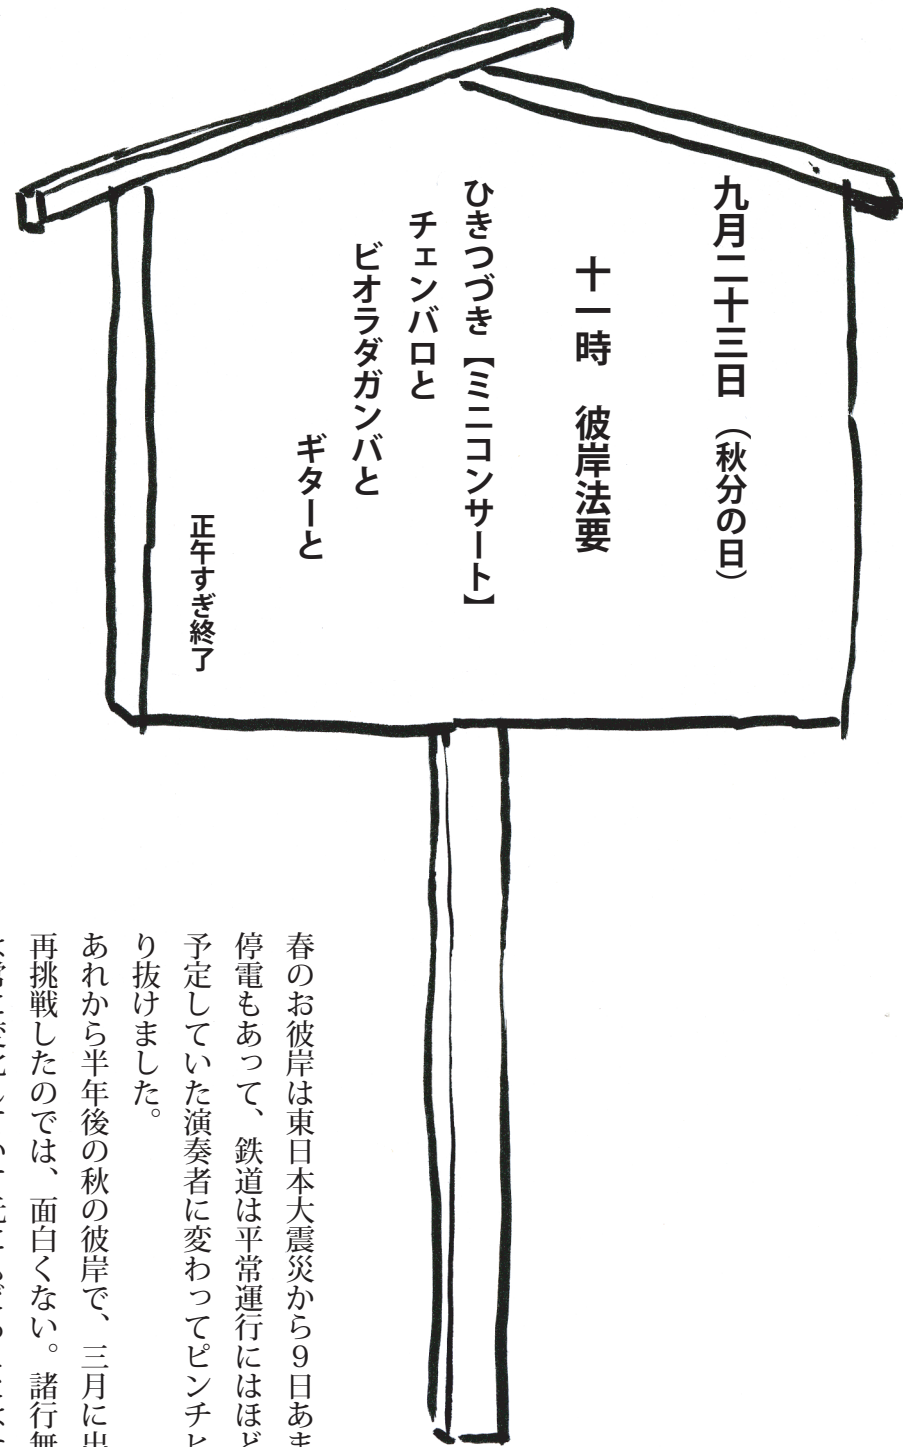 九月二十三日（秋分の日）
十一時　彼岸法要
ひきつづき【ミニコンサート】
チェンバロと
ビオラダガンバと
ギターと
正午すぎ終了
春のお彼岸は東日本大震災から９日あま
停電もあって、鉄道は平常運行にはほど
予定していた演奏者に変わってピンチヒ
り抜けました。
あれから半年後の秋の彼岸で、三月に出
再挑戦したのでは、面白くない。諸行無